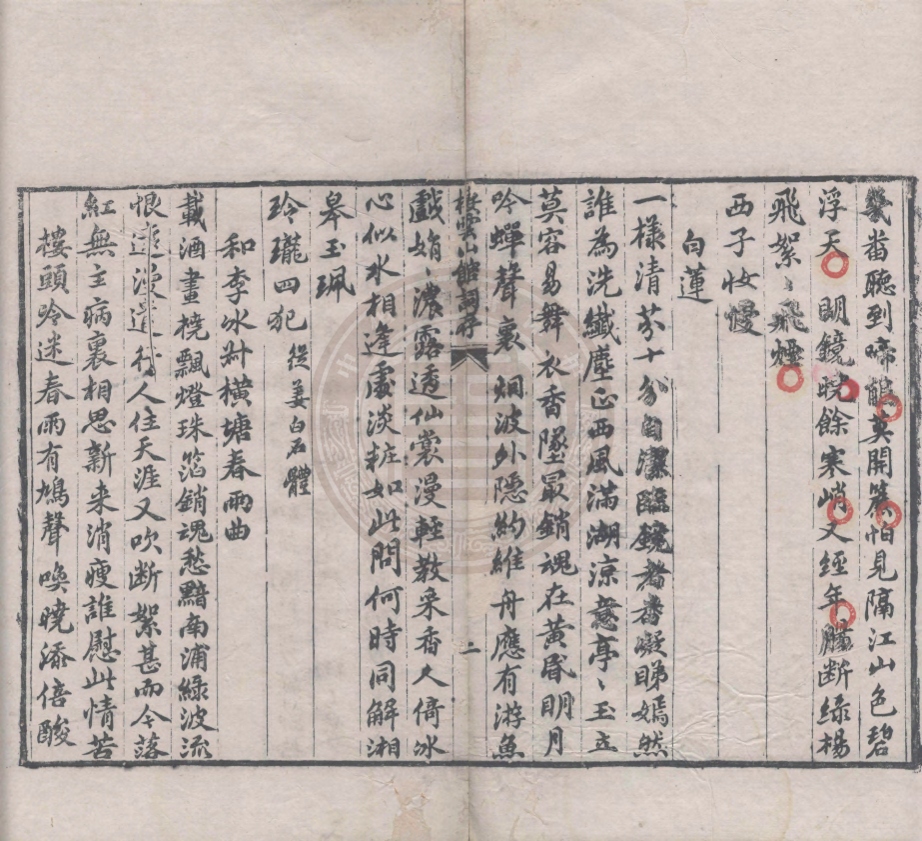 幾番聽到啼鵑莫開簾怕見隔江山色碧
浮天明鏡曉餘寒峭又經年腸斷綠楊
飛絮〻飛煙
西子妝慢
白蓮
一樣清芬十分自潔臨鏡者番凝睇嫣然
誰為洗纖塵正西風滿湖涼意亭〻玉立
莫容易舞衣香墜最銷魂在黃昏明月
吟蟬聲裏 烟波外隱約維舟應有游魚
棲雲山館詞存 二
戲娟〻濃露透仙裳漫輕教采香人倚冰
心似水相逢處淡粧如此問何時同解湘
皋玉珮
玲瓏四犯 從姜白石體
和李冰叔橫塘春雨曲
載酒畫橈飄燈珠箔銷魂愁黯南浦綠波流
恨遠 行人住天涯又吹斷絮甚而今落
紅無主病裏相思新來消瘦誰慰此情苦
樓頭吟迷春雨有鳩聲喚曉添倍酸